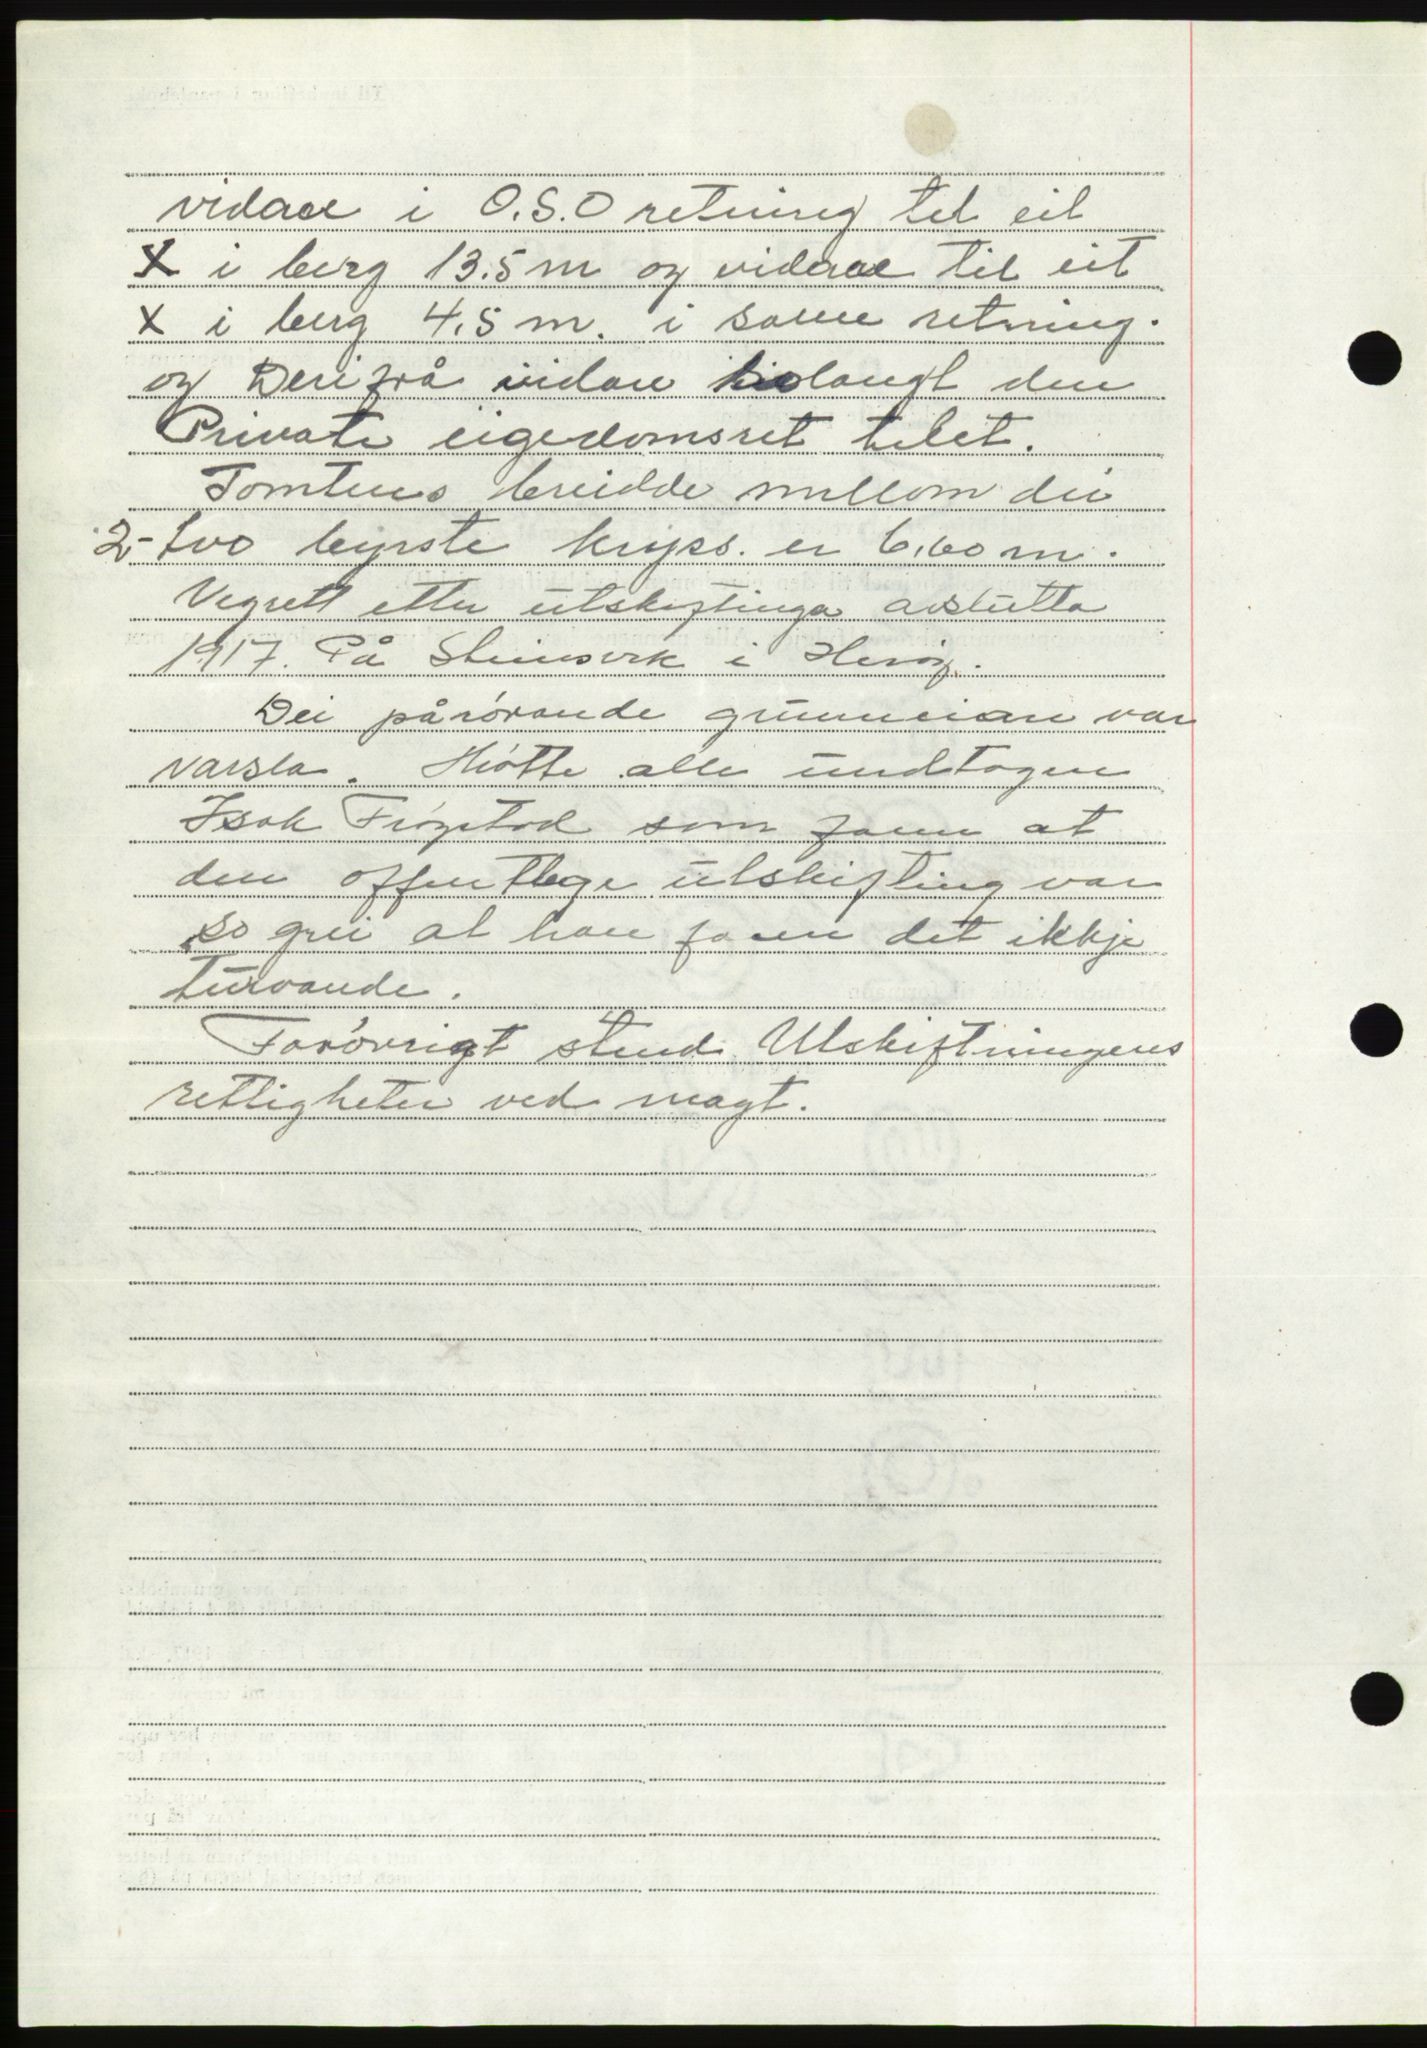 vidare i O.S.O retning til eit
X i berg 13.5 m og vidare til eit
X i berg 4,5 m. i same retning.
og Derifrå vidare langt den
Private eigedomsret telet.
Tomtens breidde millom dei
2- tvo kryss. er 6,60 m.
Vegrett etter utskiftinga avslutta
1917. På Steinsvik i Herøy.
Dei pårørande grunneiare var
varsla. Møtte alle undtagen
Isak Frøystad som fann at
den offentlege utskifting var
so grei at han fann det ikkje
turvande.
Forøvrigt stend Utskiftningens
rettigheter ved magt.